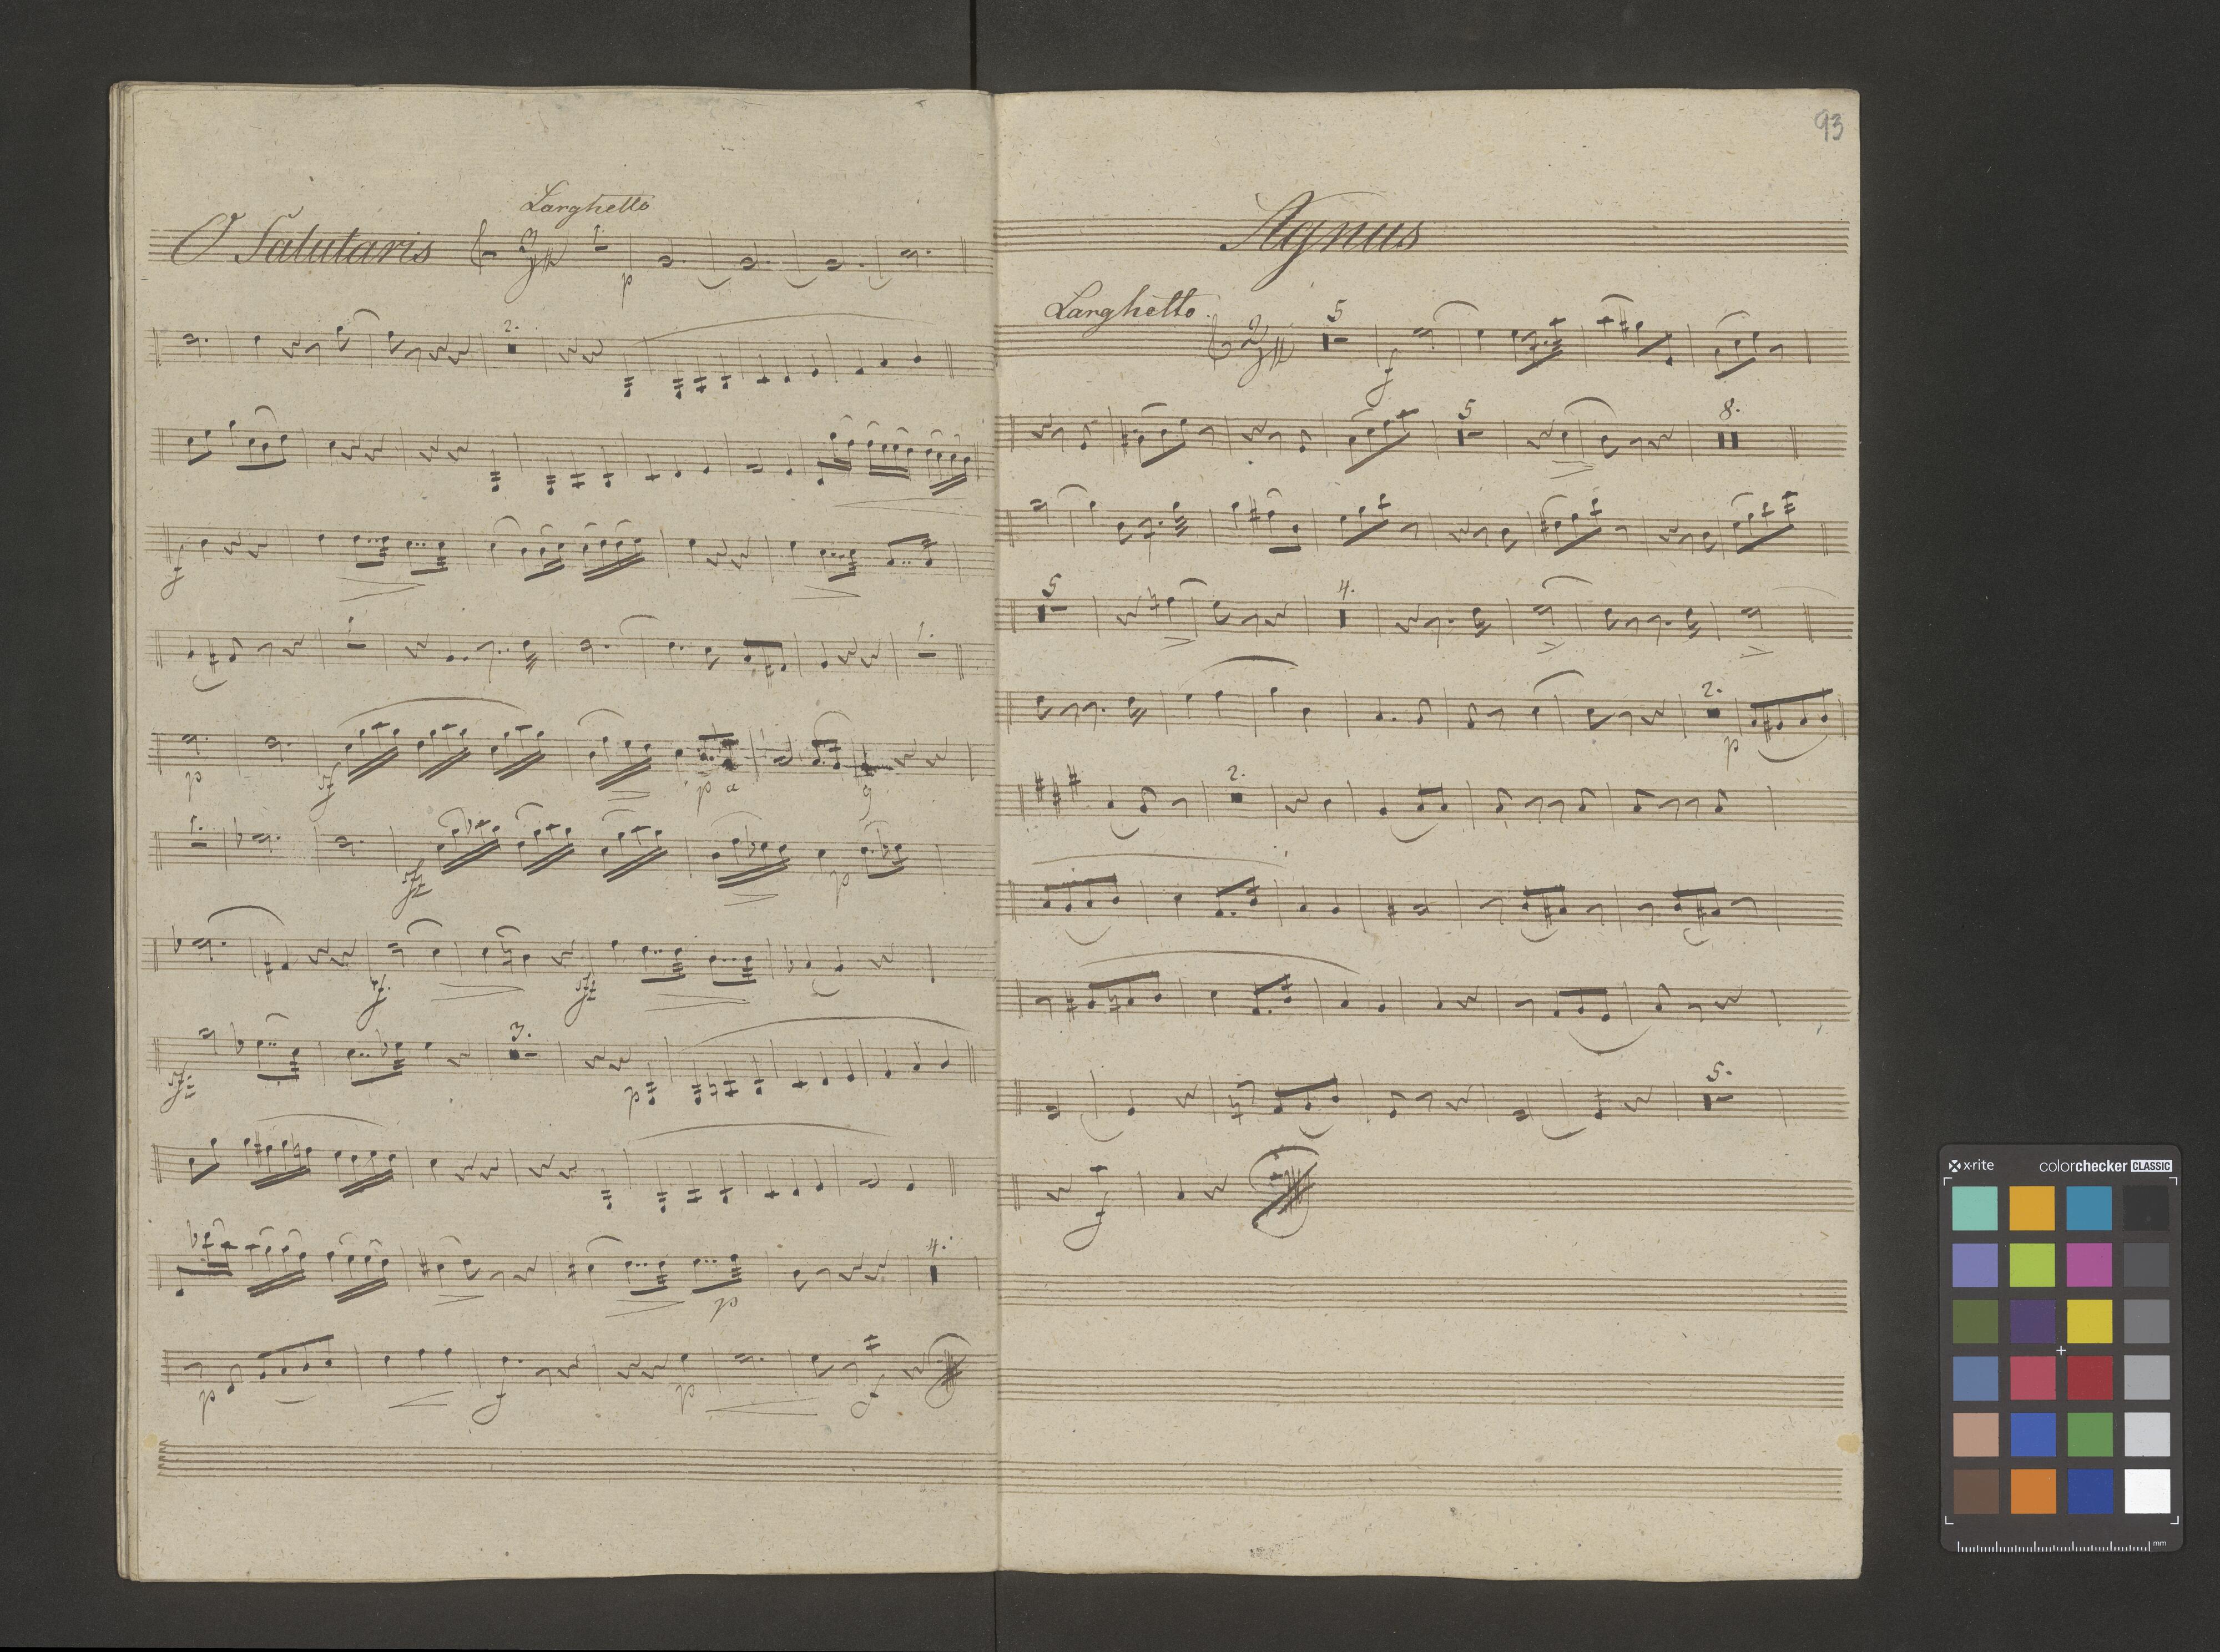 Larghetto
O Salutaris 3/4 1.
p
2.
f
1. 1.
p sf p a g
1.
sfz p
sf. sfz
sfz 3. p
p 4.
p f p f
93
Agnus
Larghetto 2/4 5
f
5 8.
5 4.
2.
p
2.
5.
f
x-rite colorchecker CLASSIC
mm